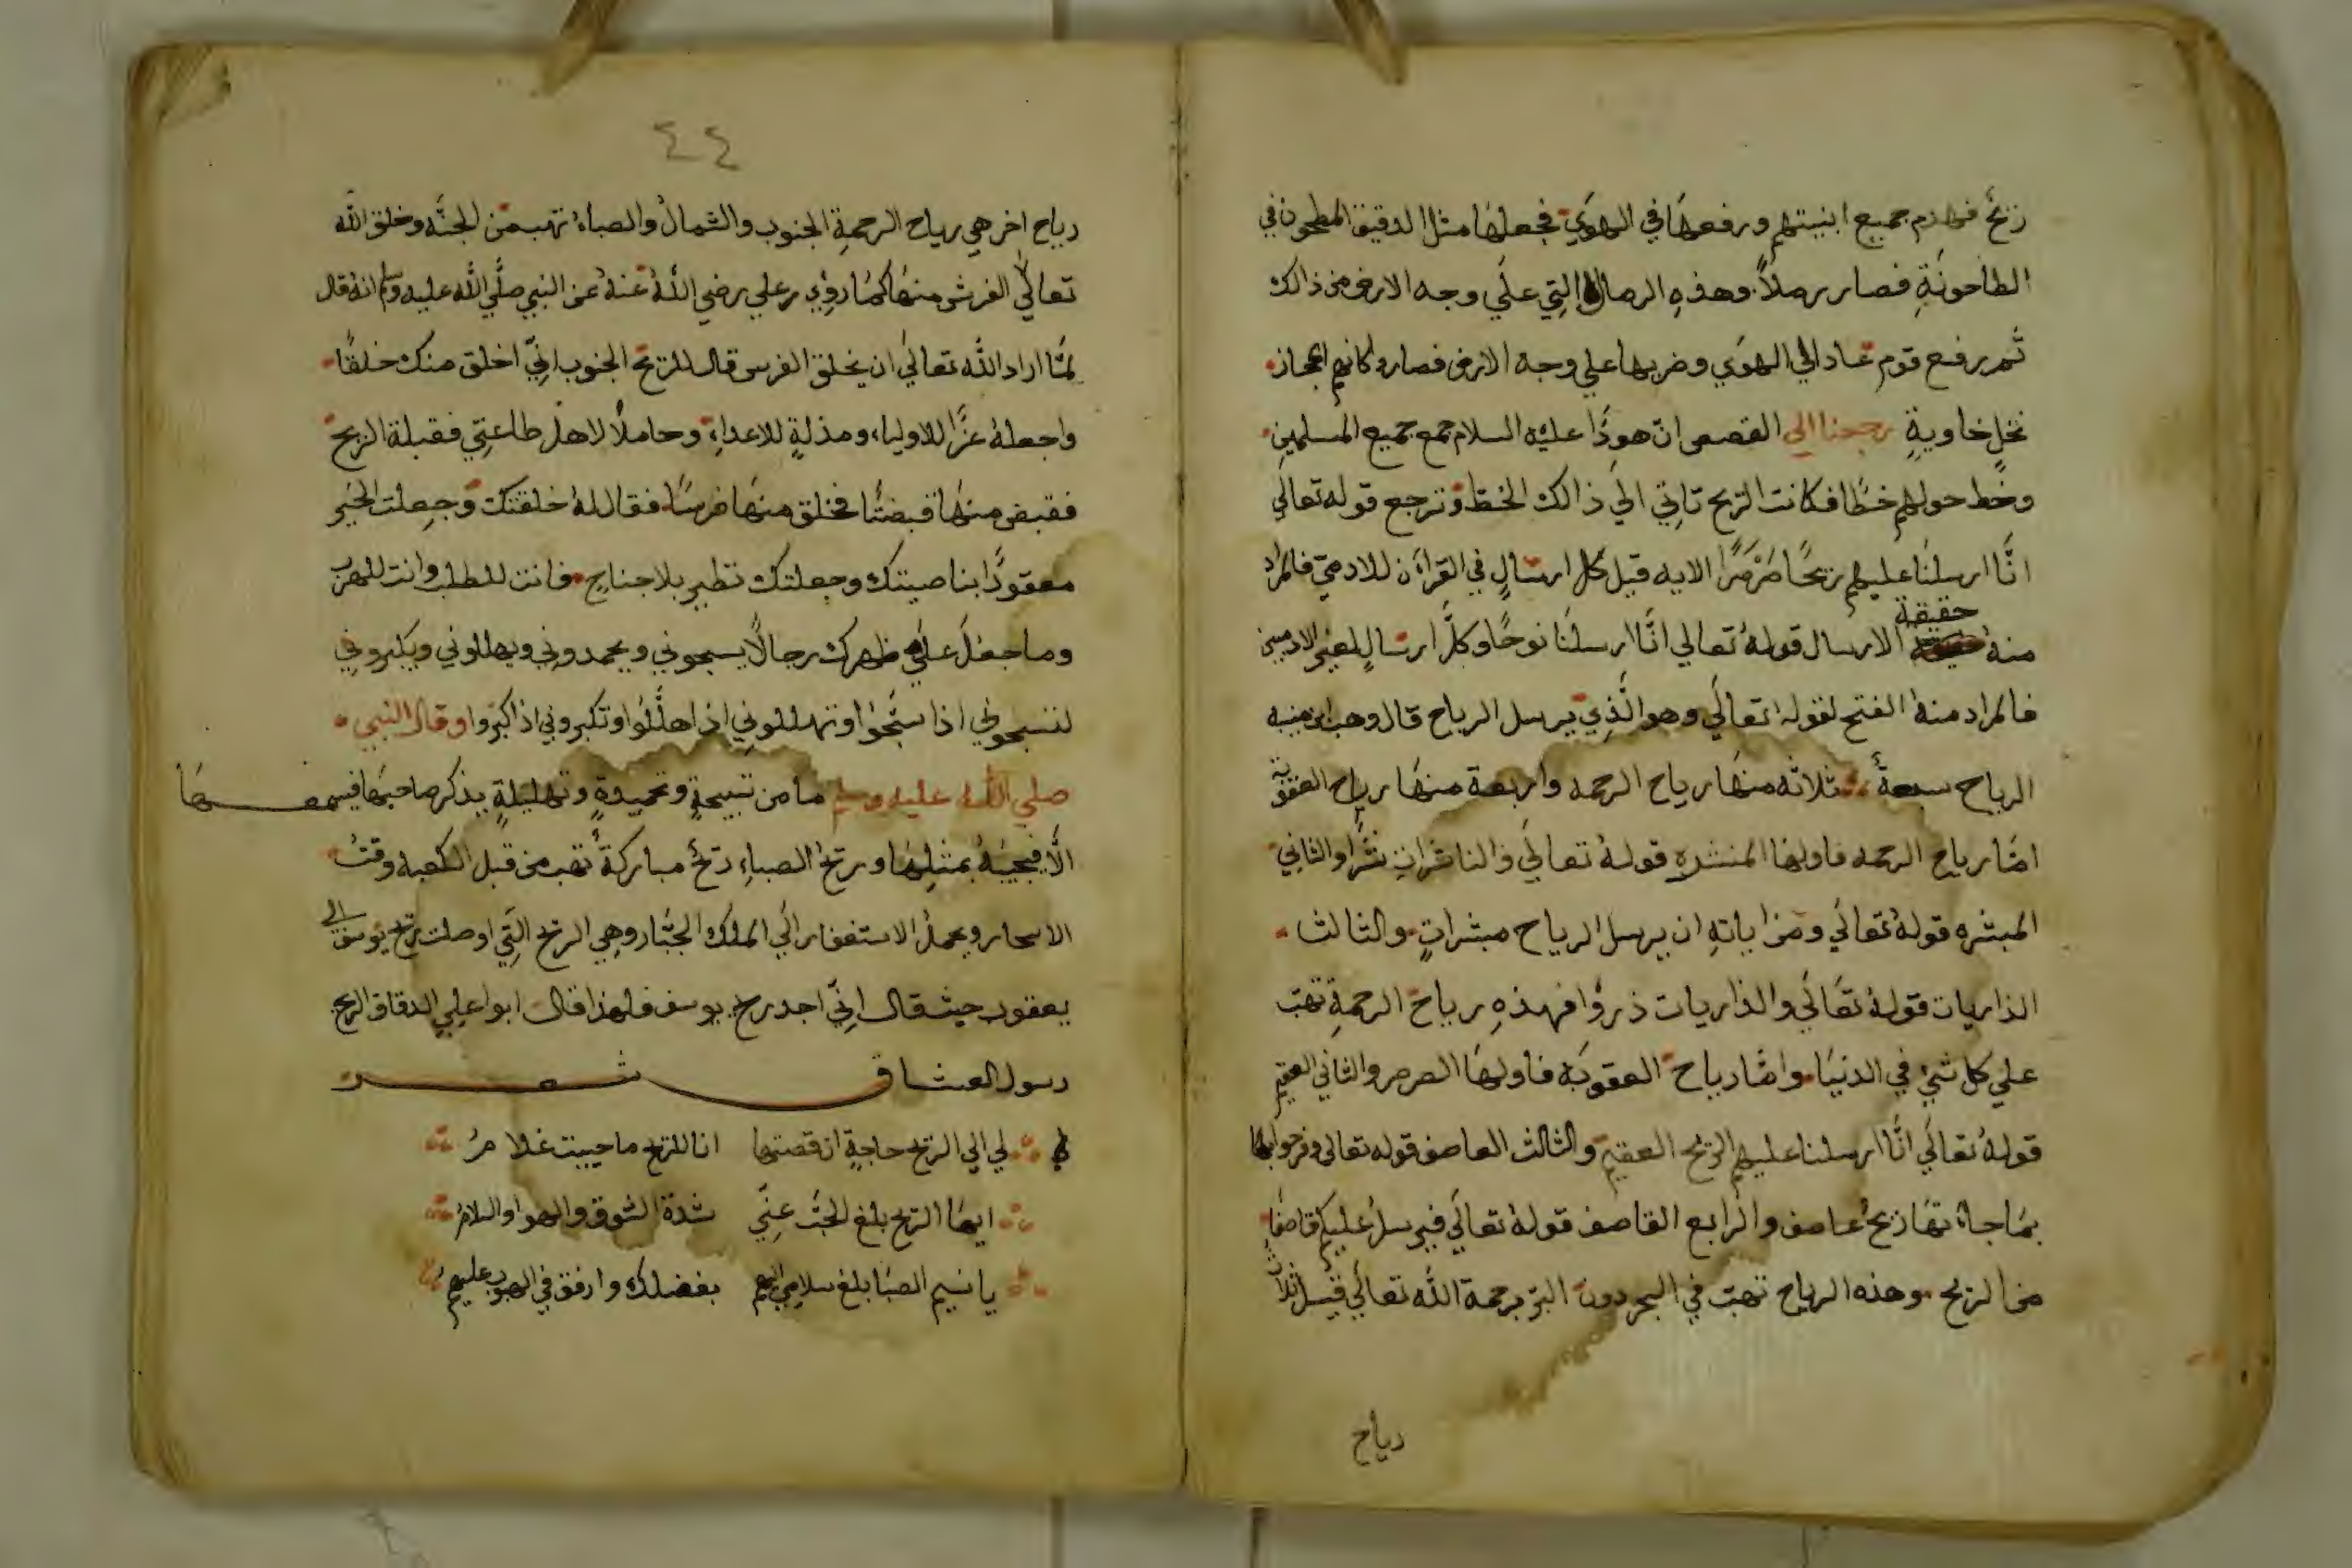 ريحٌ فهدم جميع ابنيتهم ورفعها في الهوي فجعلها مثل الدقيق المطحون في
الطاحونةِ فصار رملاً وهذهِ الرمال التي علي وجه الارض من ذالك
ثم رفع قوم عاد الي الهوي وضربها علي وجه الارض فصاروا كانهم اعجاز
نخلٍ خاويةٍ رجعنا الي القصص انّ هودًا عليه السلام جمع جميع المسلمين
وخط حولهم خطًا فكانت الريح تاتي الي ذالك الخط وترجع قوله تعالي
انّا ارسلنا عليهم ريحًا صَرْصَرًا الايه قيل كل ارسالٍ في القرآن للادميّ فالمراد
حقيقة
منه الارسال قولهُ تعالي انّا ارسلنا نوحًا وكلّ ارسالٍ لغير الادميين
فالمراد منه الفتح لقوله تعالي وهو الّذي يرسل الرياح قال وهب ابن منبه
الرياح سبعةٌ ثلاثه منها رياح الرحمه واربعة منها رياح العقوبة
امّا رياح الرحمه فاولها المنتشره قولهُ تعالي والناشراتِ نشرًا والثاني
المبشره قولهُ تعالي ومن اياتهِ ان يرسل الرياح مبشراتٍ والثالث
الذاريات قولهُ تعالي والذاريات ذروًا فهذهِ رياح الرحمةِ تهبّ
علي كل شيءٍ في الدنيا وامّا رياح العقوبه فاولها الصرصر والثاني العقيم
قولهُ تعالي انّا ارسلنا عليهم الريح العقيم والثالث العاصف قوله تعالي وفرحوا بها
بما جاءتها ريحٌ عاصف والرابع القاصف قولهُ تعالي فيرسلُ عليكم قاصفًا
من الريح وهذه الرياح تهبّ في البحر دون البرّ برحمة الله تعالي قيل ثلاث
رياح
٤٤
رياح اخر هي رياح الرحمةِ الجنوب والشمالُ والصباءُ تهب من الجنّه وخلق الله
تعالي الفرش منها كما رويَ عن علي رضي اللّهُ عنهُ عن النبي صلّي اللّه عليه وسلم انهُ قال
لمّا اراد اللّه تعالي ان يخلق الفرس قال للريح الجنوب انّي اخلق منك خلقًا
واجعلهُ عزًّا للاولياء ومذلةٍ للاعداءِ وحاملًا لاهل طاعتي فقبلة الريح
فقبض منها قبضتًا فخلق منها فرسًا فقال لهُ خلقتك وجعلت الخير
معقودًا بناصيتك وجعلتك تطير بلا جناحٍ فانت للطلب وانت للهرب
وساجعلَ علي ظهرك رجالًا يسبحوني ويحمدوني ويهللوني ويكبروني
لتسبحوني اذا سبّحُوا وتهللوني اذا هلّلُوا وتكبروني اذا كبّروا وقال النبي
صلي اللّه عليه وسلم ما من تسبيحةٍ وتحميدةٍ وتهليلةٍ يذكر صاحبها فيسمعها
الّا فيجيبهُ بمثلِها وريحُ الصباءِ ريحٌ مباركةٌ تهب من قبل الكعبه وقتُ
الاسحار ويحملُ الاستغفار الي الملك الجبّار وهي الريح التي اوصلت ريح يوسف الي
يعقوب حيث قال انّي اجد ريح يوسف فلهذا قال ابوا علي الدقاق الريح
رسول العشاق شعر
لي الي الريح حاجةٍ ان قضتها انا للريح ما حييت غلامرُ
ايها الريح بلغ الحبّ عنّي شدة الشوق والهوا والسلامُ
يا نسيم الصبا بلغ سلامي اليهم بفضلك وارفق في الهبوب عليهم